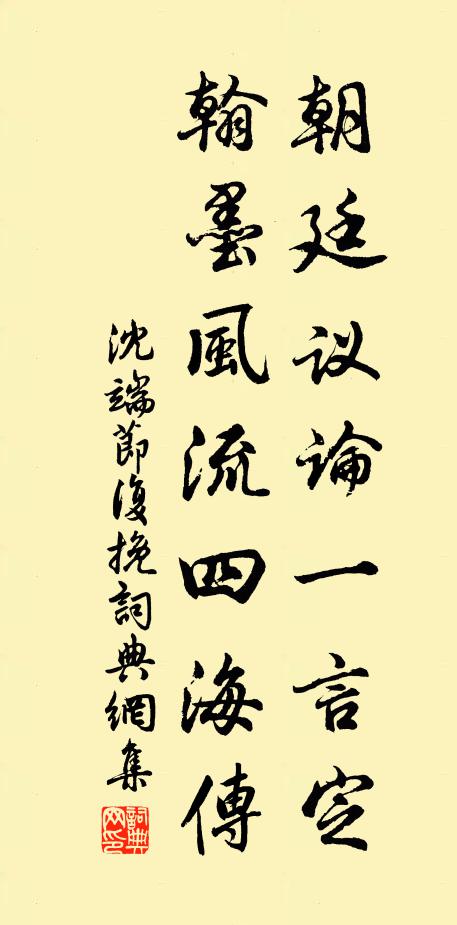 朝廷议論一言定
翰墨風流四海傳
沈端節復挽詞典網集
詞典网印